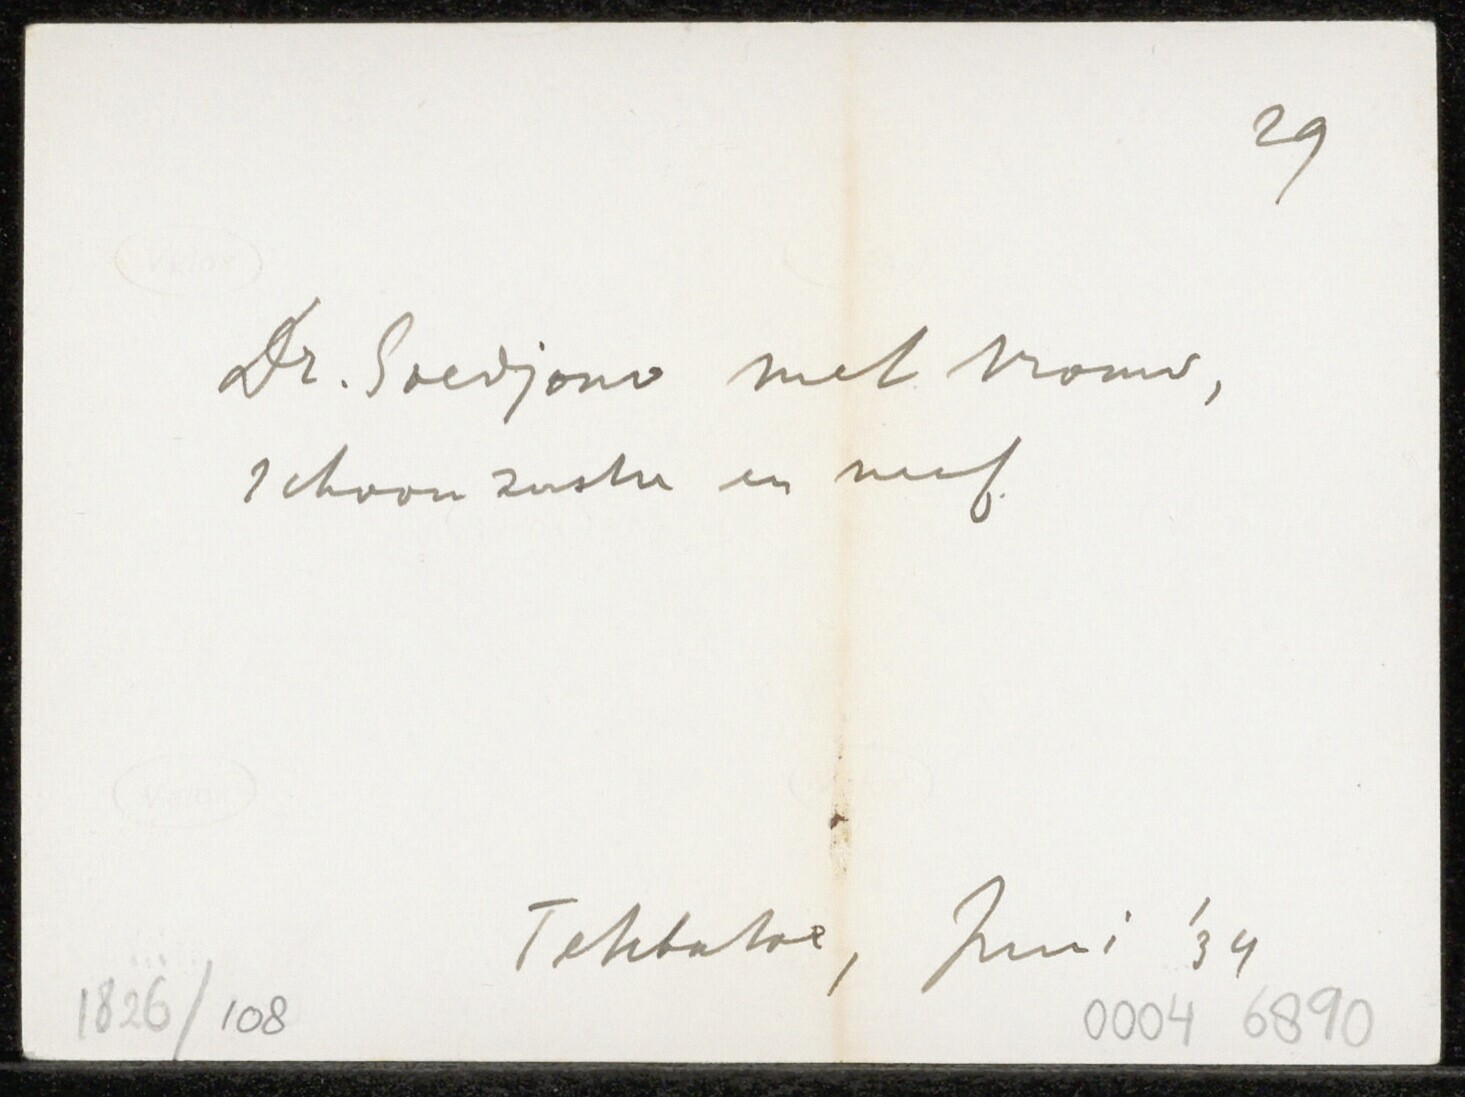 29
Dr. Soedjono met vrouw,
schoonzuster en neef.
Tekbatoe, Juni '34
1826/108
0004 6890